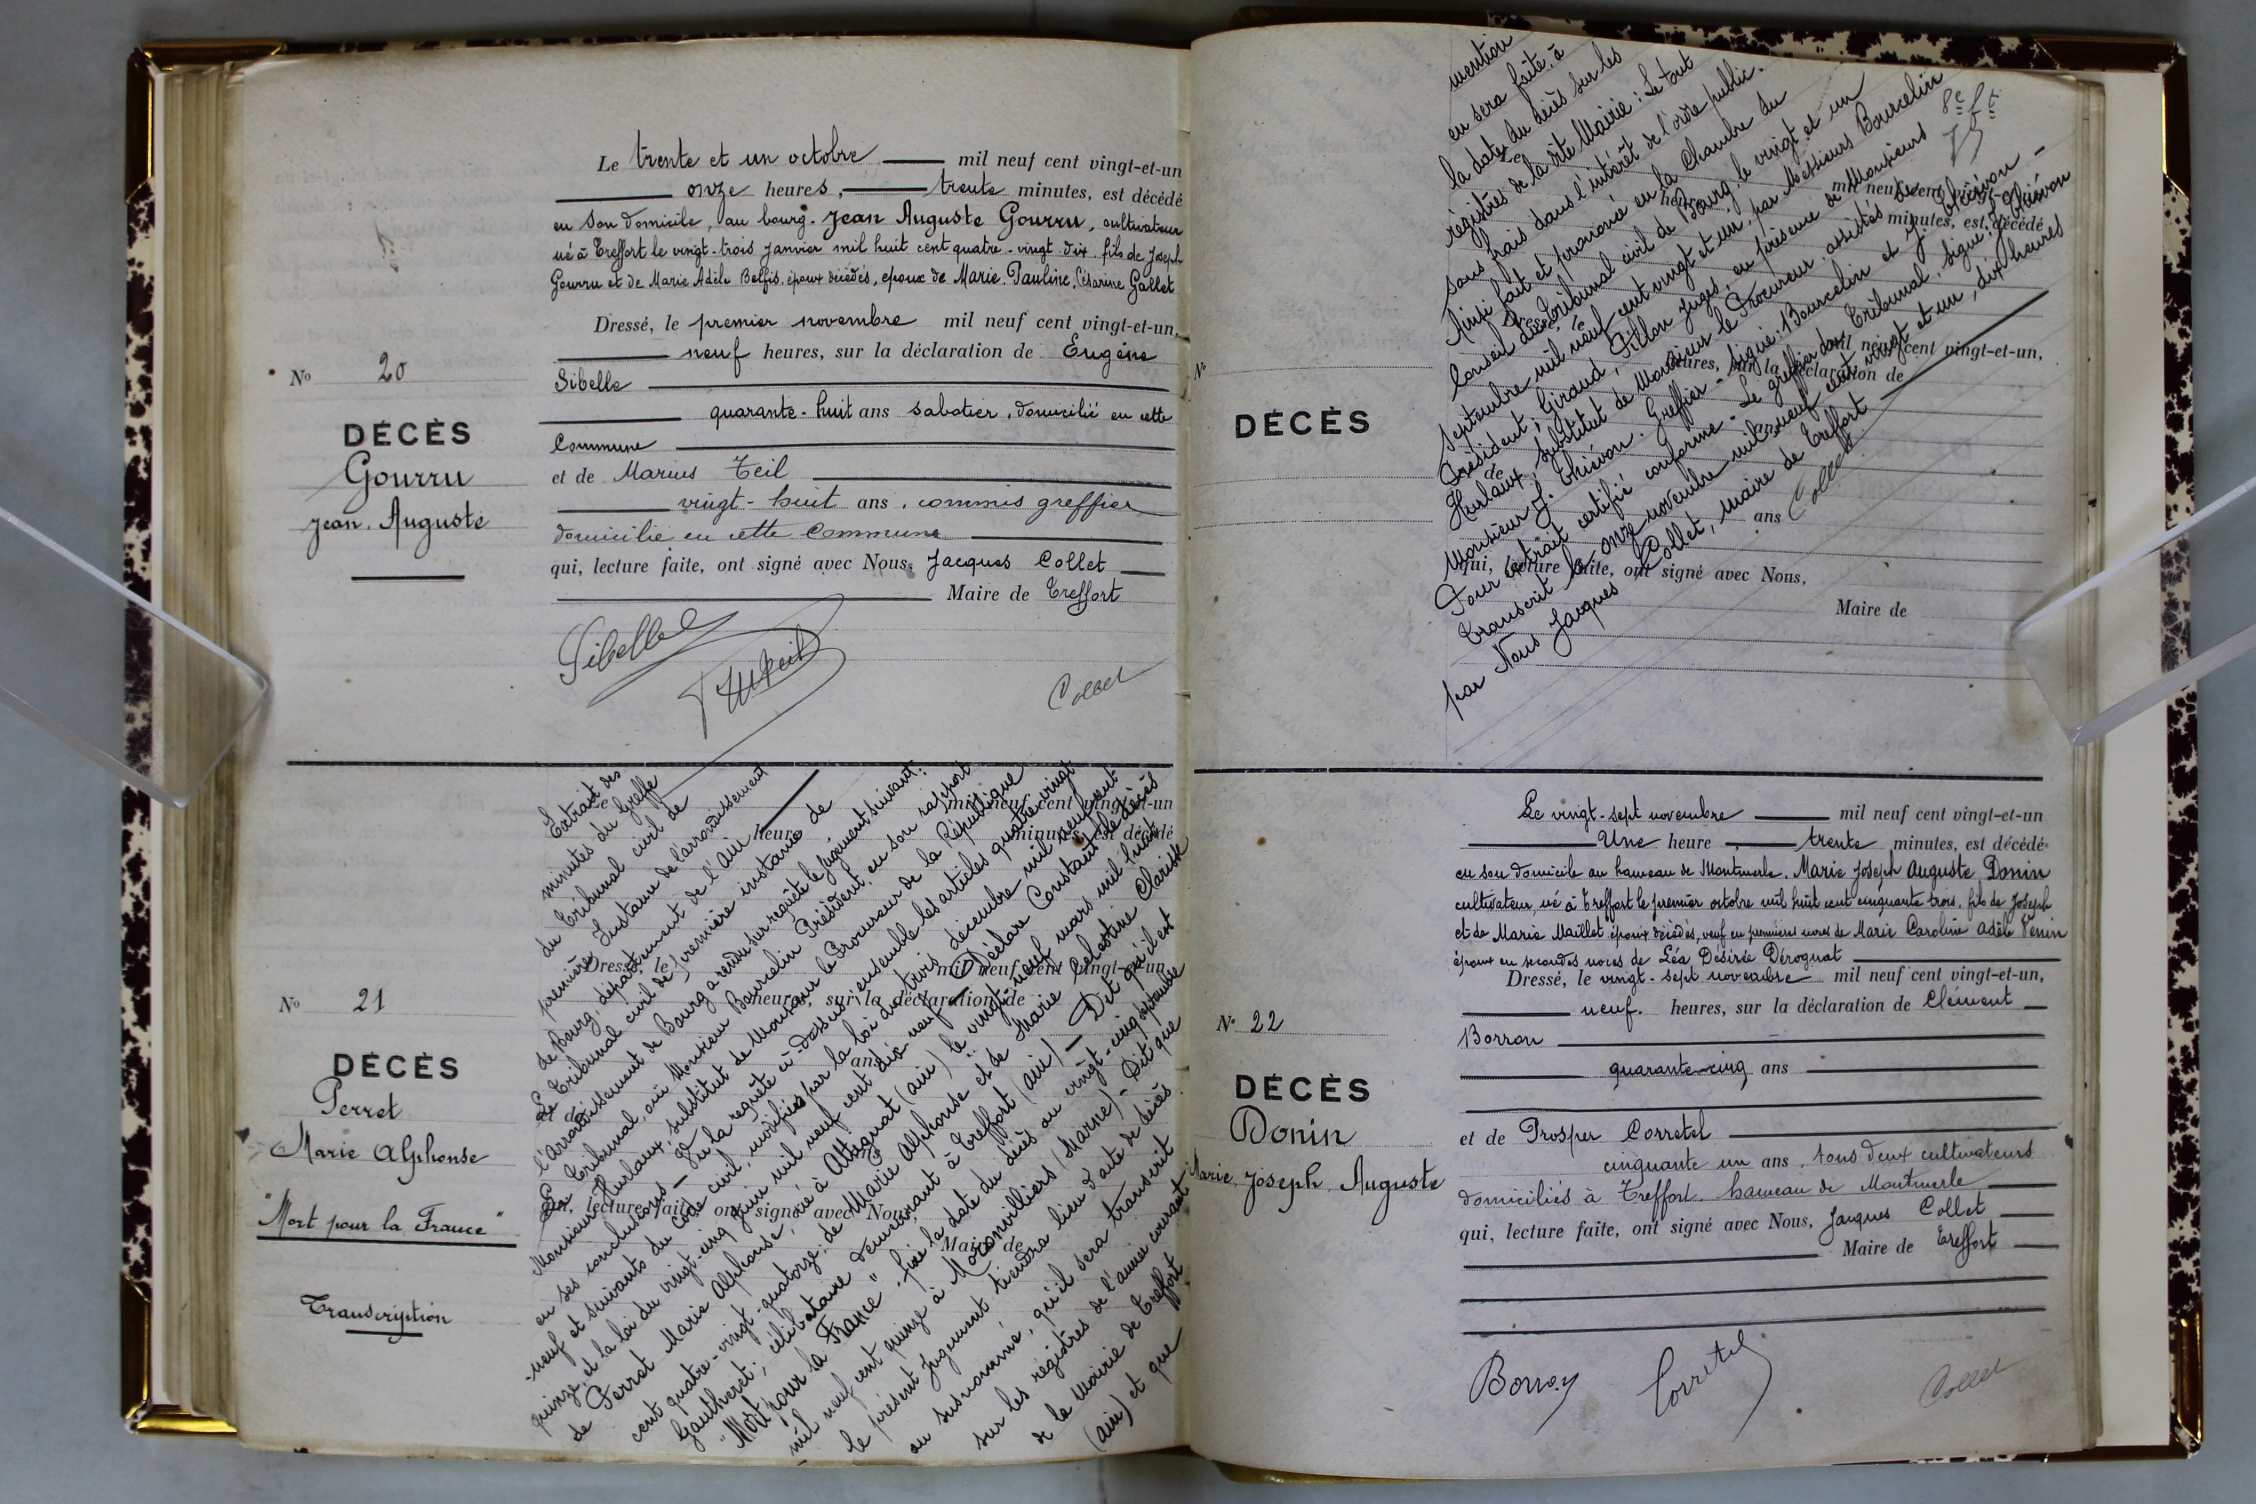 Le trente et un octobre mil neuf cent vingt-et-un
onze heures, trente minutes, est décédé
en son domicile, au bourg. Jean Auguste Gourru, cultivateur
né à Treffort le vingt-trois janvier mil huit cent quatre-vingt dix. fils de Joseph
Gourru et de Marie Adèle Belfis, époux décédés, époux de Marie. Pauline. Césarine Gallet
Dressé, le premier novembre mil neuf cent vingt-et-un,
neuf heures, sur la déclaration de Eugène
Sibelle
quarante-huit ans sabotier, domicilié en cette
Commune
et de Marius Teil
vingt-huit ans, commis greffier
domicilié en cette Commune
qui, lecture faite, ont signé avec Nous, Jacques Collet
Maire de Treffort
Sibelle
Collet
No 20
DÉCÈS
Gourru
Jean. Auguste
No 21
DÉCÈS
Perret
Marie Alphonse
"Mort pour la France"
Transcription
Le mil neuf cent vingt-et-un
heure minutes, est décédé
Dressé, le mil neuf cent vingt-et-un,
heures, sur la déclaration de
ans
et de
qui, lecture faite, ont signé avec Nous,
Maire de
Extrait des
minutes du Greffe
du Tribunal civil de
première Instance de l'arrondissement
de Bourg, département de l'Ain
Le Tribunal civil de première instance de
l'Arrondissement de Bourg a rendu sur requête le jugement suivant:
Le Tribunal, ouï Monsieur Bourcelin Président, en son rapport
Monsieur Hurlaux, substitut de Monsieur le Procureur de la République
en ses conclusions - Vu la requête ci-dessus, ensemble les articles quatre-vingt
-neuf et suivants du Code civil, modifiés par la loi du trois décembre mil neuf cent
quinze, et la loi du vingt-cinq juin mil neuf cent dix-neuf - Déclare Constant le décès
de Perret Marie Alphonse, né à Attignat (ain) le vingt-neuf mars mil huit
cent quatre-vingt-quatorze, de Marie Alphonse et de Marie Célestine Clarisse
Gautheret; célibataire demeurant à Treffort (ain) - Dit qu'il est
"Mort pour la France", fixe la date du décès au vingt-cinq septembre
mil neuf cent quinze à (Marne) - Dit que
le présent Jugement tiendra lieu d'acte de décès
au susnommé, qu'il sera transcrit
sur les régistres de l'année courante
de la Mairie de Treffort
(ain) et que
mention
en sera faite à
la date du décès sur les
régistres de la dite Mairie: Le tout
sans frais dans l'intérêt de l'ordre public.
Ainsi fait et prononcé en la Chambre du
Conseil du Tribunal civil de Bourg, le vingt et un
Septembre mil neuf cent vingt et un, par Messieurs Bourcelin
Président, Giraud, Pillon juges, en présence de Monsieur
Hurlaux, substitut de Monsieur le Procureur assistés de
Monsieur J. Thiévon. Greffier - signé: Bourcelin et J. Thiévon -
Pour extrait certifié conforme - Le greffier du Tribunal, signé: J. Thiévon
Transcrit le onze novembre mil neuf cent vingt et un, dix heures
par Nous Jacques Collet, Maire de Treffort
Collet
No
DÉCÈS
Le mil neuf cent vingt-et-un
heure minutes, est décédé
Dressé, le mil neuf cent vingt-et-un,
heures, sur la déclaration de
de
ans
qui, lecture faite, ont signé avec Nous,
Maire de
No 22
DÉCÈS
Donin
Marie. Joseph. Auguste
Le vingt-sept novembre mil neuf cent vingt-et-un
Une heure, trente minutes, est décédé
en son domicile au hameau de Montmerle. Marie Joseph Auguste Donin
cultivateur, né à Treffort le premier octobre mil huit cent cinquante trois, fils de Joseph
et de Marie Maillet époux décédés, veuf en premières noces de Marie Caroline Adèle Venin
époux en secondes noces de Léa Désirée Dérognat
Dressé, le vingt-sept novembre mil neuf cent vingt-et-un,
neuf. heures, sur la déclaration de Clément
Borron
quarante-cinq ans
et de Prosper Corretel
cinquante un ans, tous deux cultivateurs
domiciliés à Treffort. hameau de Montmerle
qui, lecture faite, ont signé avec Nous, Jacques Collet
Maire de Treffort
Borron
Corretel
Collet